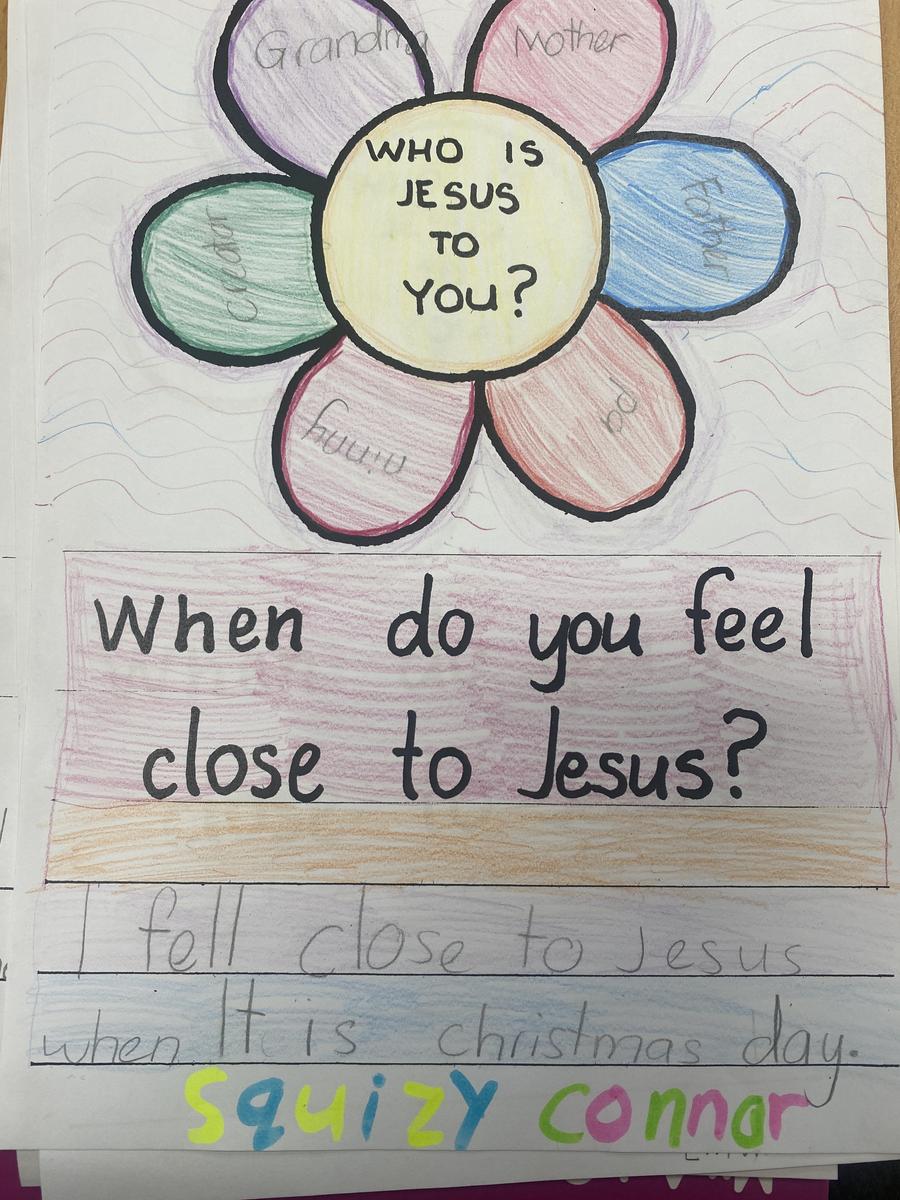 Grandma
Mother
Father
pa
ninny
creator
WHO IS
JESUS
TO
YOU?
When do you feel
close to Jesus?
I fell close to Jesus
when It is christmas day.
Squizy connor